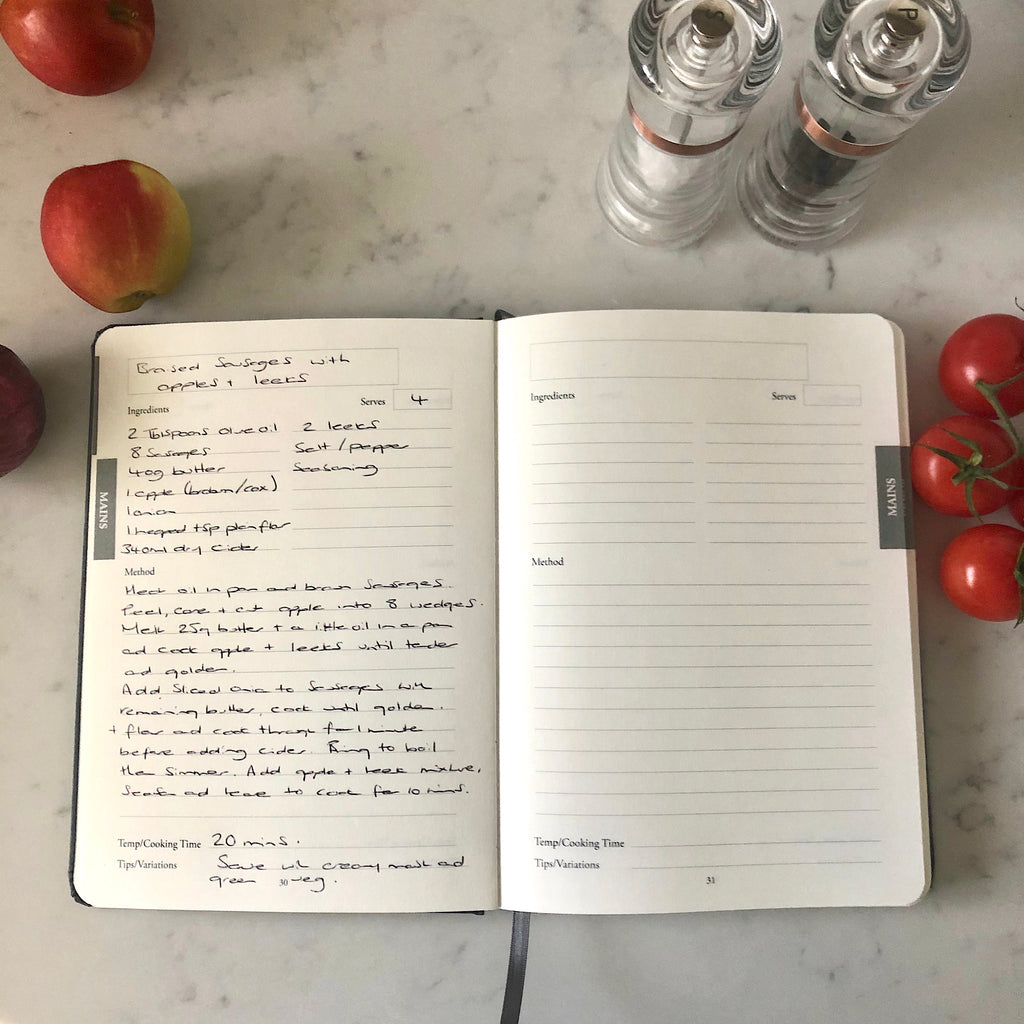 S
P
Braised Sausages with
apples + leeks
Ingredients
Serves 4
2 Tblspoons olive oil
2 leeks
8 Sausages
Salt / pepper
40g butter
Seasoning
1 apple (braburn/cox)
1 onion
1 heaped tsp plain flour
340ml dry cider
MAINS
Method
Heat oil in pan and brown sausages.
Peel, core + cut apple into 8 wedges.
Melt 25g butter + a little oil in a pan
and cook apple + leeks until tender
and golden.
Add sliced onion to sausages with
remaining butter, cook until golden.
+ flour and cook through for 1 minute
before adding cider. Bring to boil
then simmer. Add apple + leek mixture,
Season and leave to cook for 10 mins.
Temp/Cooking Time 20 mins.
Tips/Variations Serve with creamy mash and
green veg.
30
Ingredients
Serves
MAINS
Method
Temp/Cooking Time
Tips/Variations
31